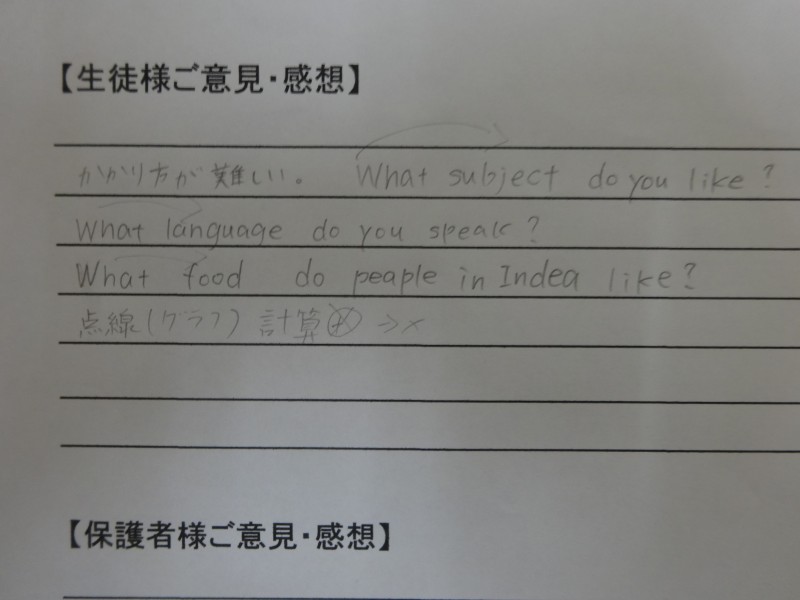 【生徒様ご意見・感想】
かかり方が難しい。 What subject do you like?
What language do you speak?
What food do peaple in Indea like?
点線(グラフ) 計算 →×
【保護者様ご意見・感想】